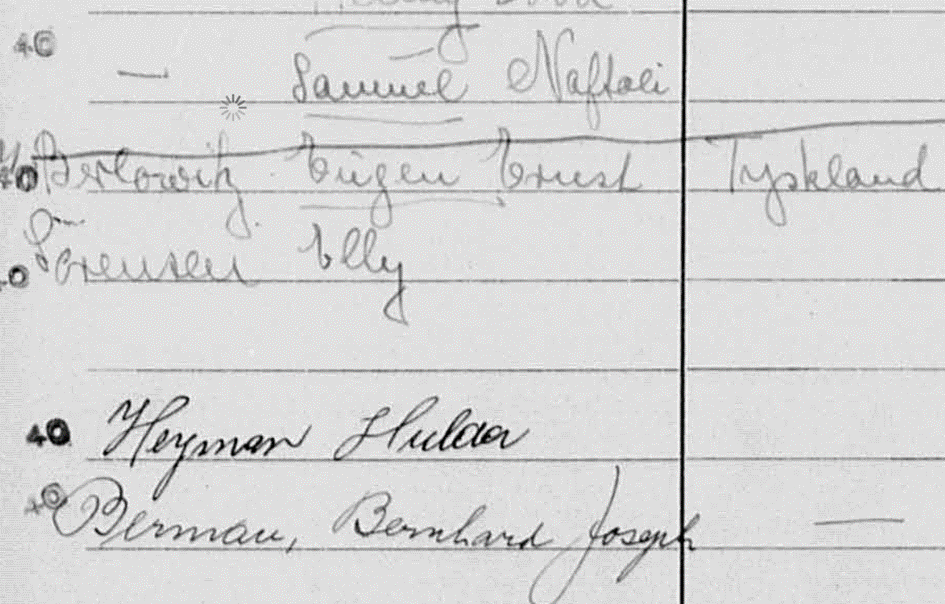 40
— Samuel Naftali
40 Berlowitz Eugen Ernst Tyskland
40 Sörensen Elly
40 Heyman Hulda
40 Berman, Bernhard Joseph —